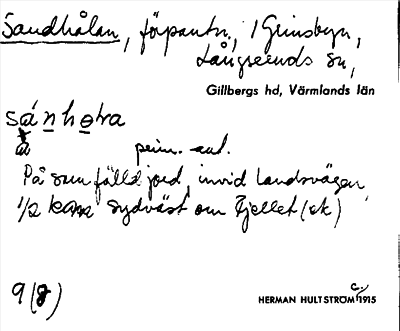 Sandhålan, förpantn, i Grinsbyn,
Långseruds sn,
Gillbergs hd, Värmlands län
sánhola
å prim. ant.
På sumpfälld jord, invid landsvägen,
1/2 km sydväst om Fjellet (ek)
9(8)
HERMAN HULTSTRÖM c. 1915